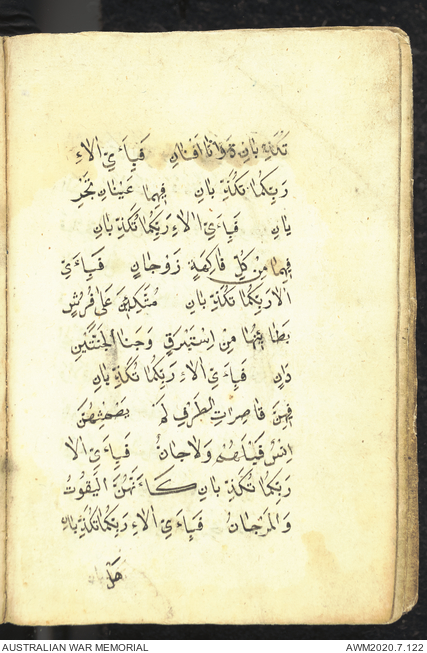 تُكَذِّبَانِ ذَوَاتَا اَفْنَانٍ فَبِاَيِّ الآءِ
رَبِّكُمَا تُكَذِّبَانِ فِيهِمَا عَيْنَانِ تَجْرِ
يَانِ فَبِاَيِّ الآءِ رَبِّكُمَا تُكَذِّبَانِ
فِيهِمَا مِنْ كُلِّ فَاكِهَةٍ زَوْجَانِ فَبِاَيِّ
الآ رَبِّكُمَا تُكَذِّبَانِ مُتَّكِئِينَ عَلَى فُرُشٍ
بَطَائِنُهَا مِنْ اِسْتَبْرَقٍ وَجَنَا الْجَنَّتَيْنِ
دَانٍ فَبِاَيِّ الآءِ رَبِّكُمَا تُكَذِّبَانِ
فِيهِنَّ قَاصِرَاتُ الطَّرْفِ لَمْ يَطْمِثْهُنَّ
اِنْسٌ قَبْلَهُمْ وَلَا جَانٌّ فَبِاَيِّ الآ
رَبِّكُمَا تُكَذِّبَانِ كَاَنَّهُنَّ الْيَاقُوتُ
وَالْمَرْجَانُ فَبِاَيِّ الآءِ رَبِّكُمَا تُكَذِّبَانِ
هَلْ
AUSTRALIAN WAR MEMORIAL AWM2020.7.122